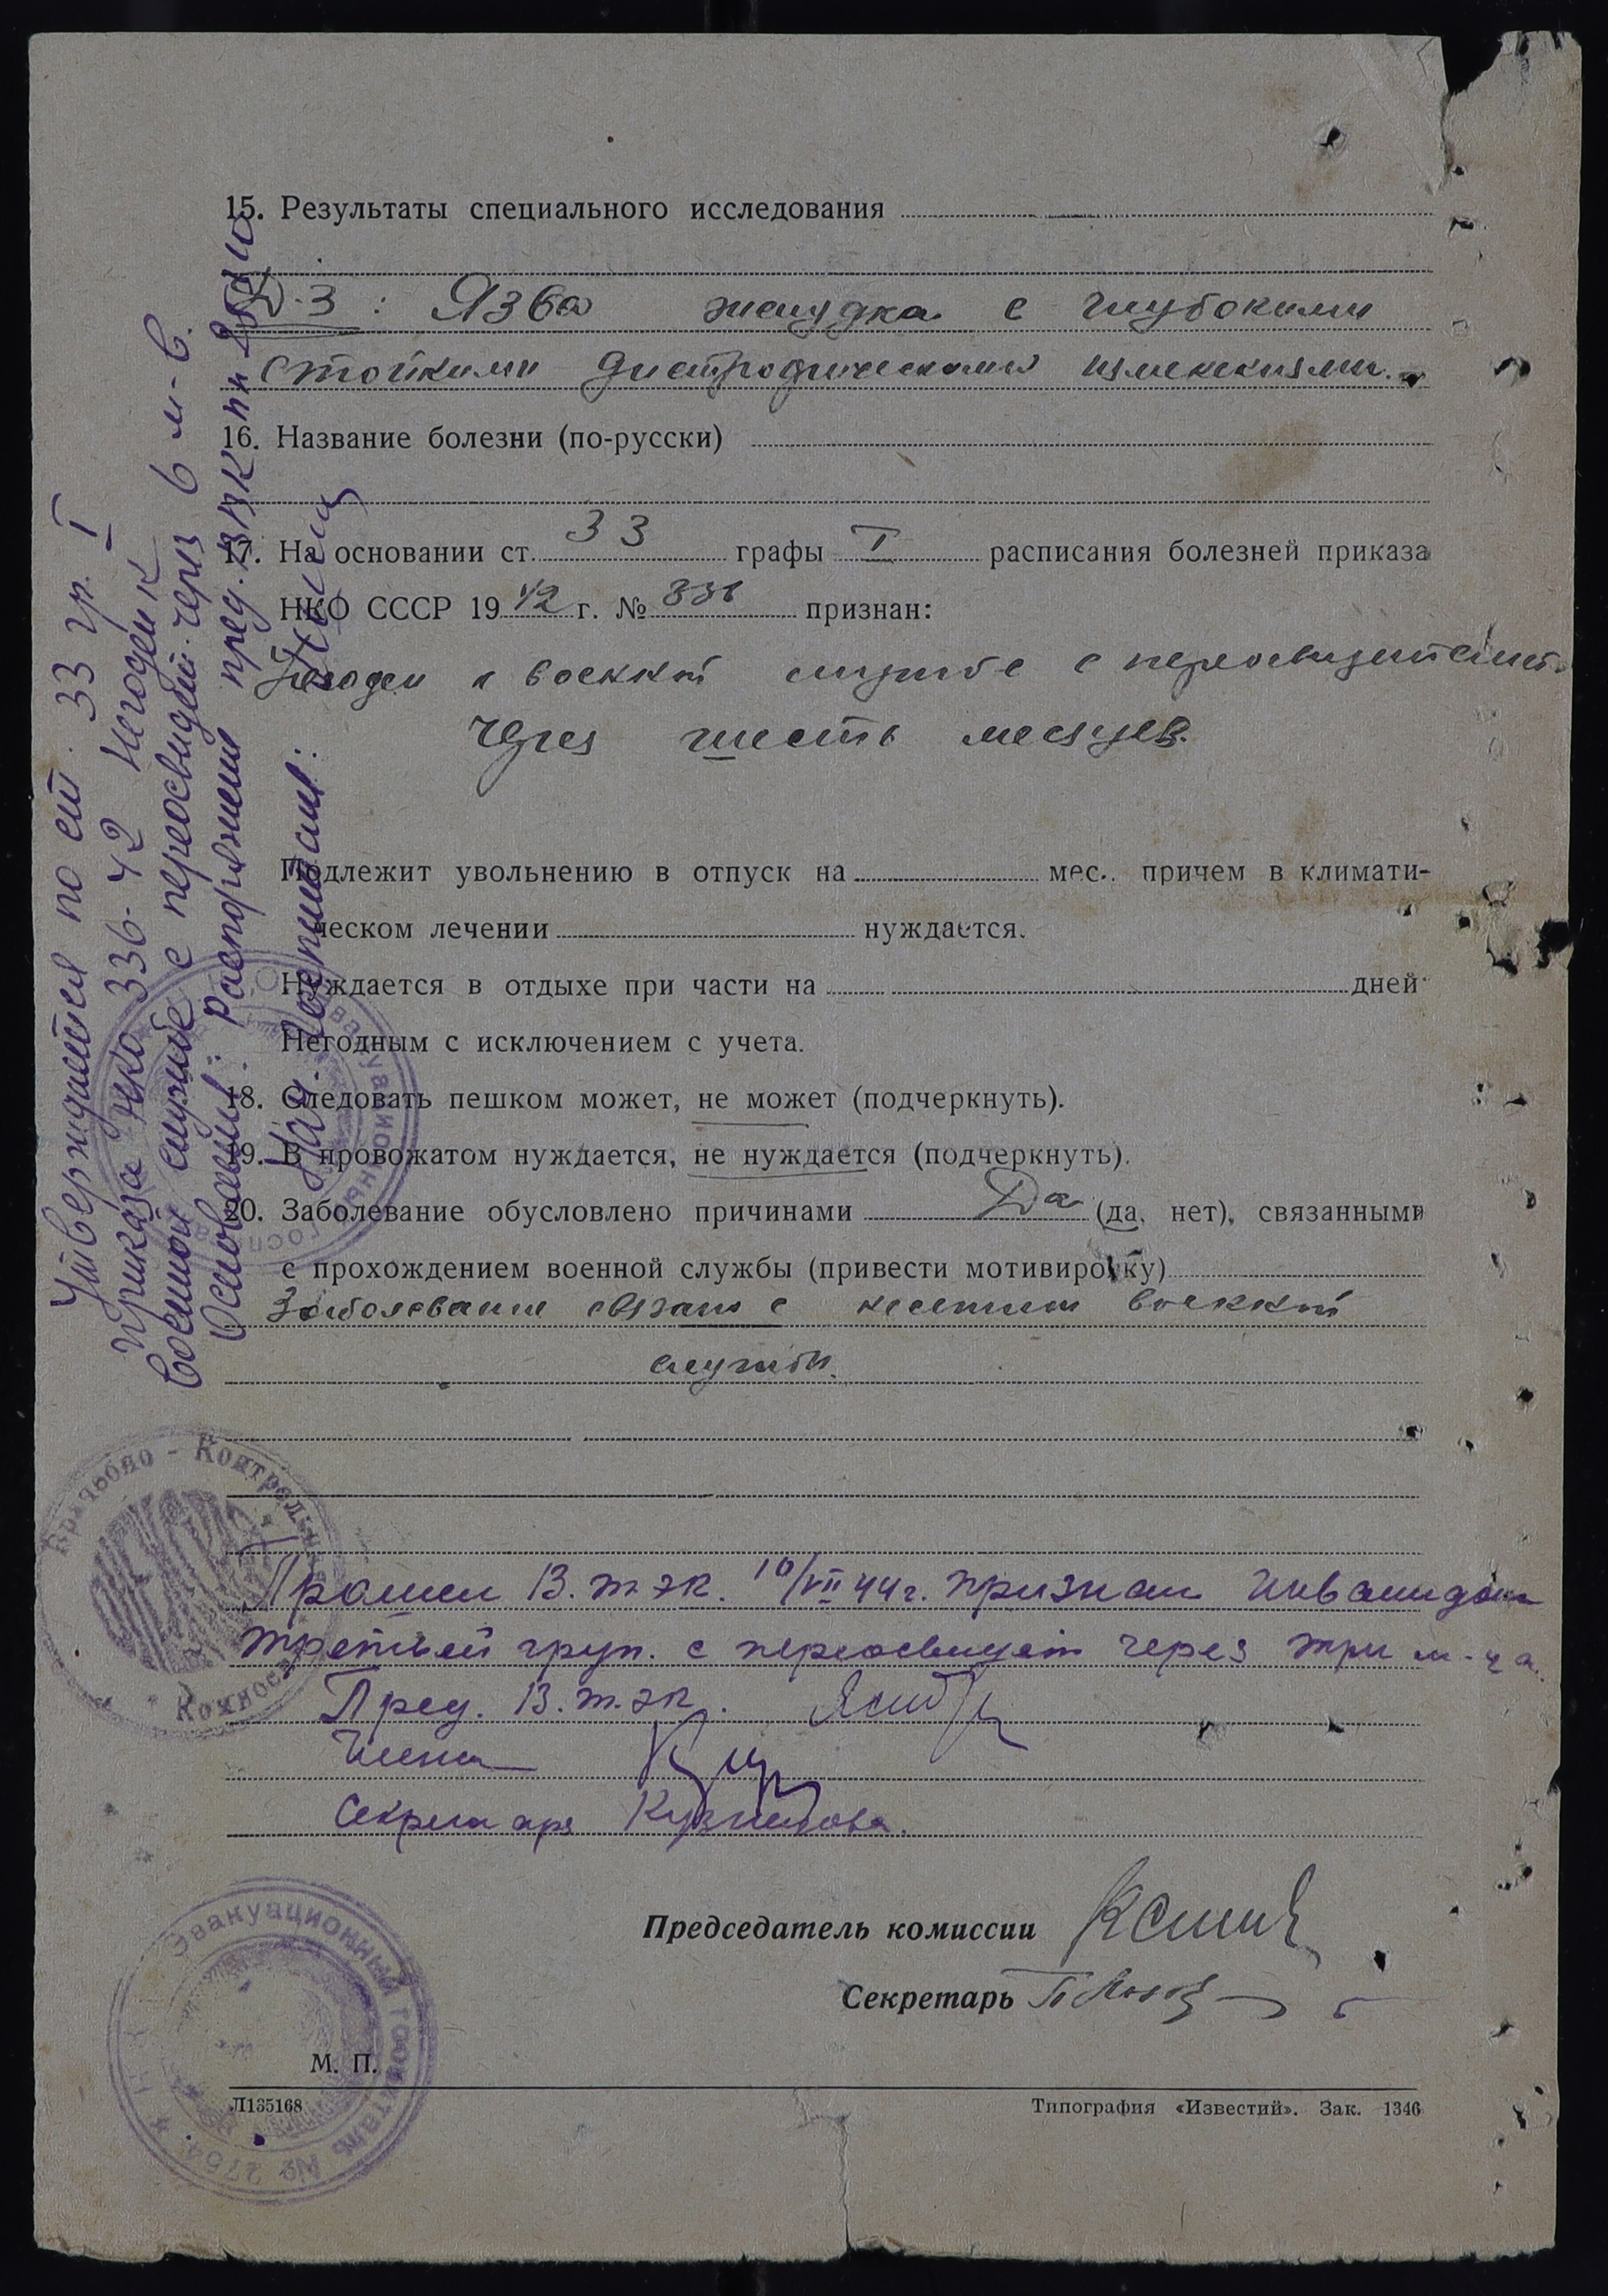 15. Результаты специального исследования
Д-з: Язва желудка с глубокими
стойкими дистрофическими изменениями.
16. Название болезни (по-русски)
17. На основании ст. 33 графы I расписания болезней приказа
НКО СССР 1942 г. № 336 признан:
Негоден к военной службе с переосвидетельст.
через шесть месяцев.
Подлежит увольнению в отпуск на мес., причем в климати-
ческом лечении нуждается.
Нуждается в отдыхе при части на дней
Негодным с исключением с учета.
18. Следовать пешком может, не может (подчеркнуть).
19. В провожатом нуждается, не нуждается (подчеркнуть).
20. Заболевание обусловлено причинами Да (да, нет), связанными
с прохождением военной службы (привести мотивировку)
Заболевание связано с несением военной
службы.
Прошел В.т.эк. 10/VII 44 г. признан инвалидом
третьей груп. с переосвидет через три м-ца.
Пред. В.т.эк.
Члены
Секретарь Кузнецова.
Председатель комиссии
Секретарь
М. П.
Л135168
Типография «Известий». Зак. 1346
Утверждается по ст. 33 гр. I
приказа НКО 336-42 Негоден к
военной службе с переосвидет. через 6 м-в.
Основание: распоряжение пред. ВВК
Нач. госпиталя:
Врачебно-Контрольная Комиссия
Эвакуационный госпиталь № 2754
Эвакуационный госпиталь